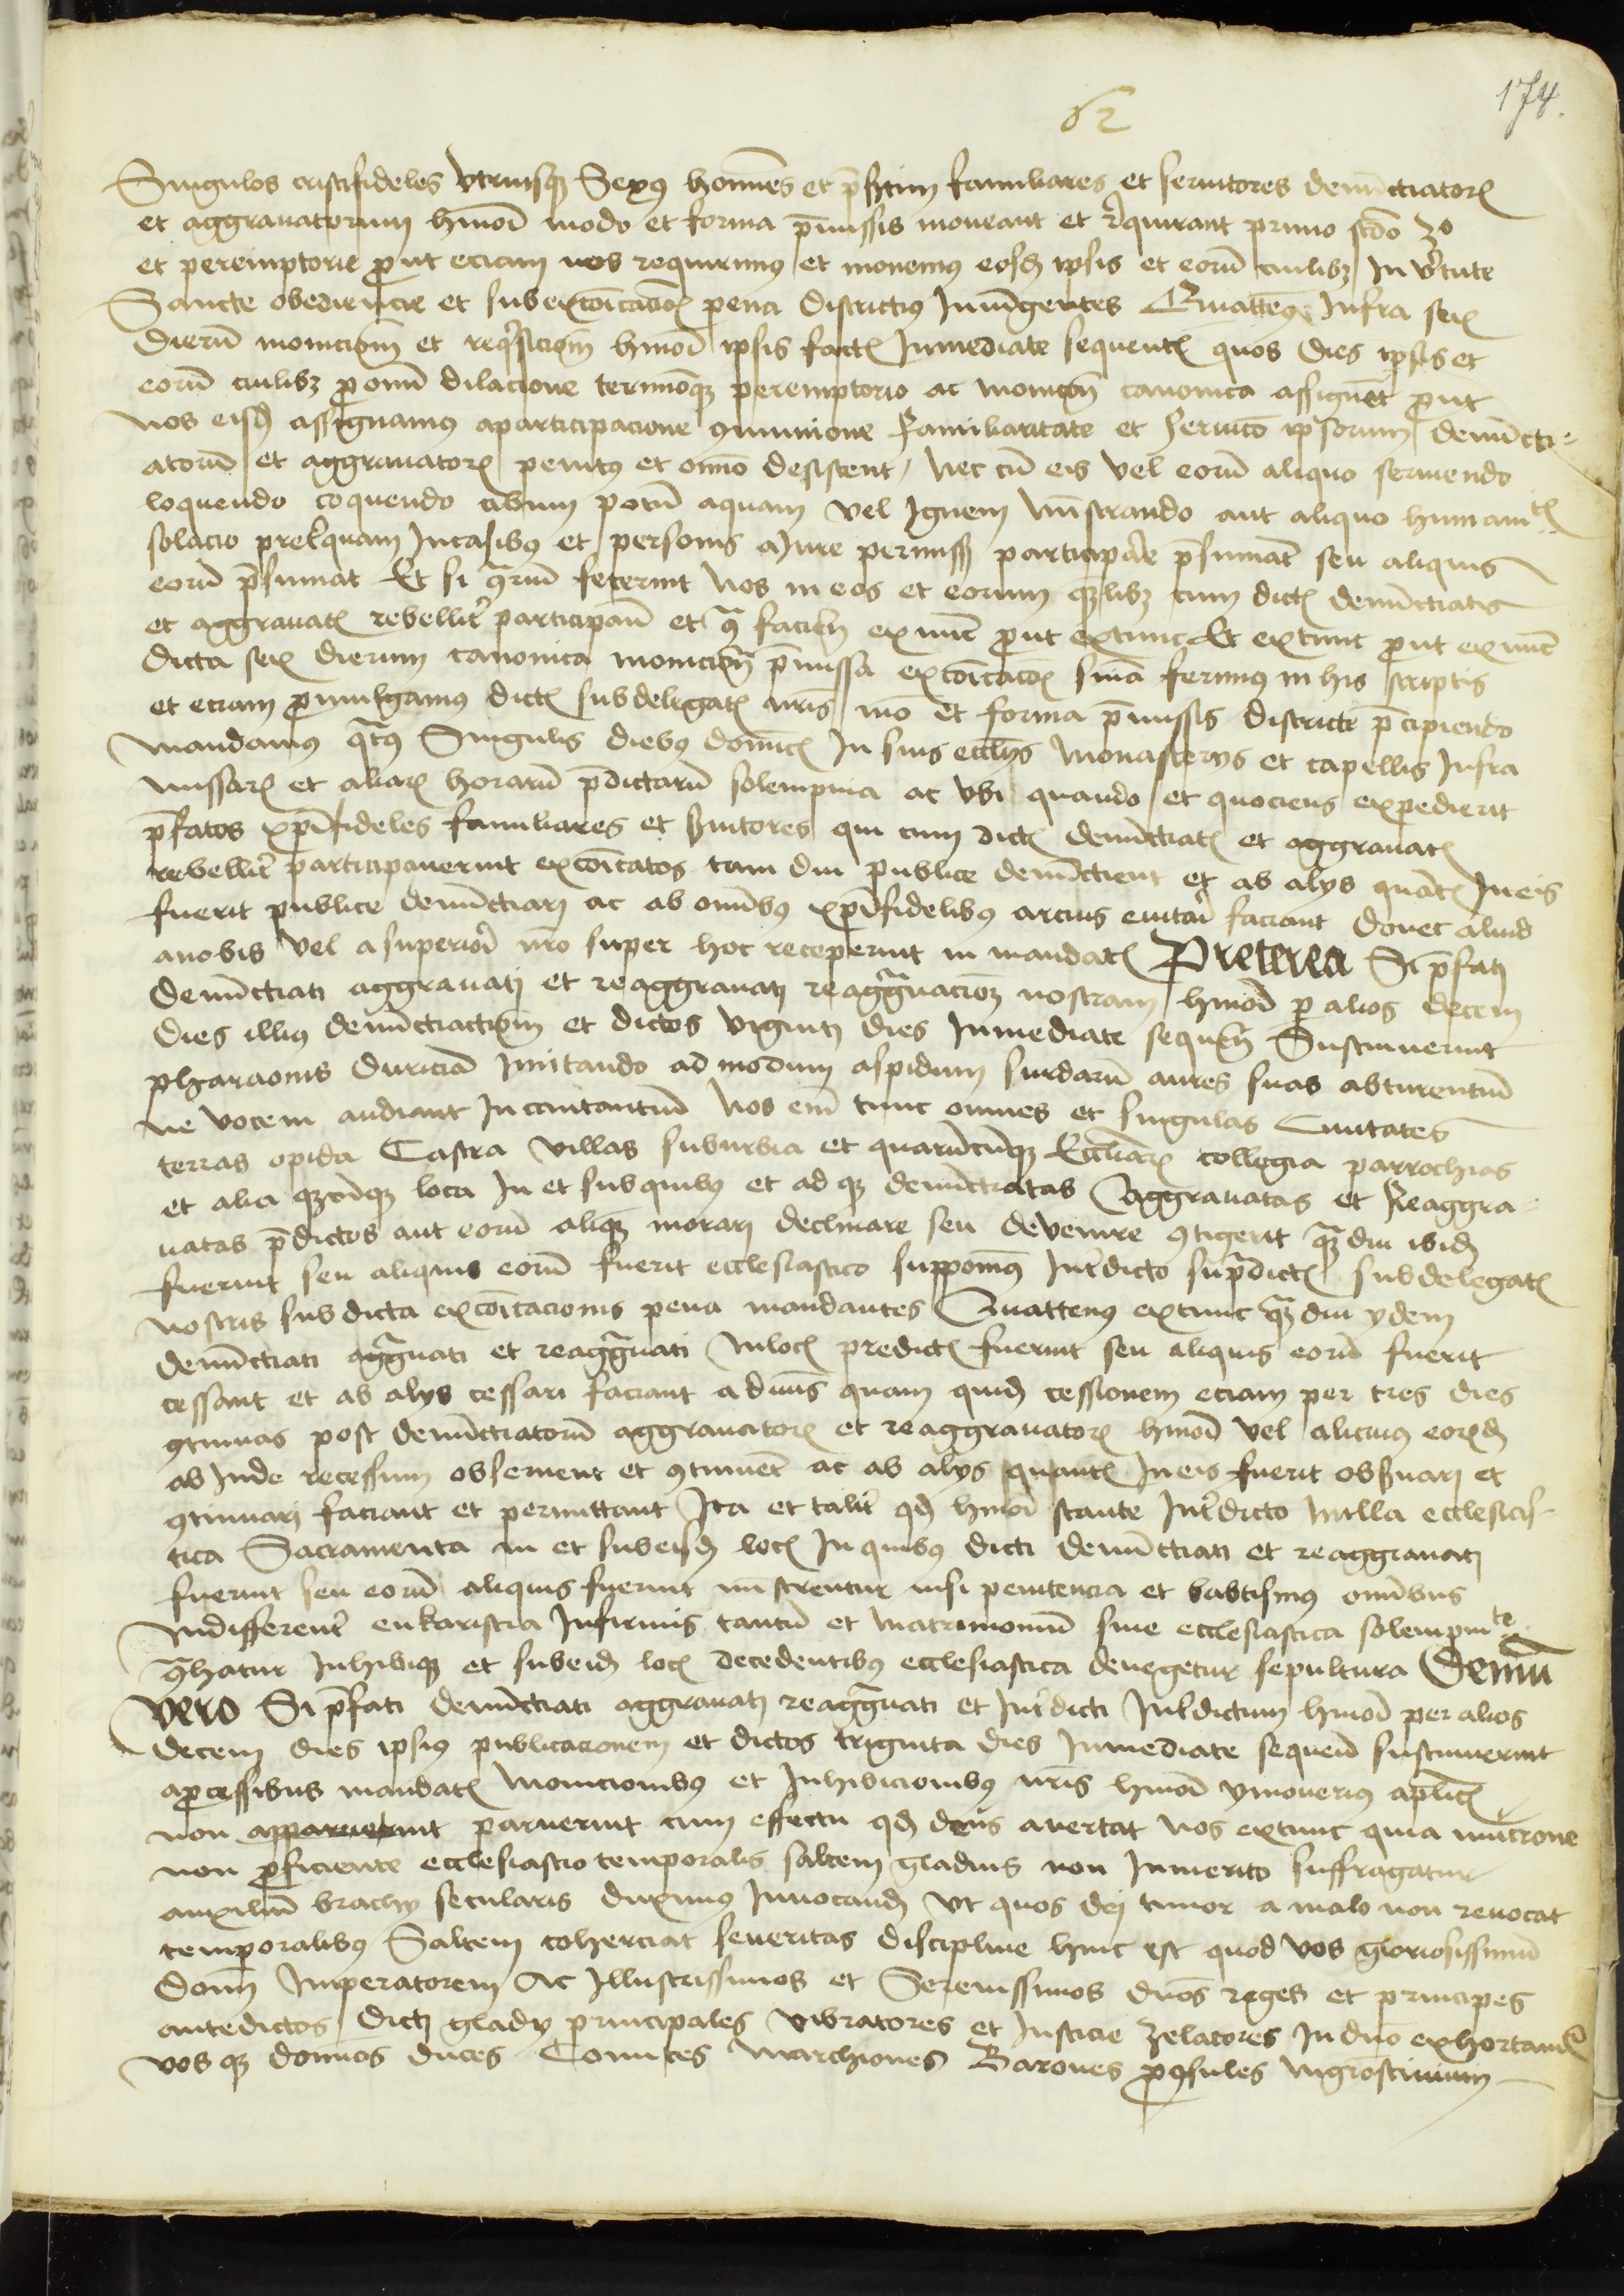 174.
62
Singulos cristifideles vtriusq3 Sexus homines et p̄sertim familiares et seruitores denūctiator(um)
et aggrauatorum hmōi modo et forma p̄missis moneant et requirant primo scdo 3o
et peremptorie prout eciam nos requirimus et monemus eosd(em) ipsis et eorū cuilib3 In v̓tute
Sancte obediencie et sub excōicacōis pena districtius Iniūgentes Quatten(us) Infra sex
dierū monicionē et req̓sicionē hmōi ipsis fact(am) Inmediate sequent(es) quos dies ipsis et
eorū cuilib3 pro omī dilacione terminoq3 peremptorio ac monicōe canonica assignēt prout
nos eisd(em) assignamus a participacione 9munione familiaritate et seruicio ipsorum denūcti-
atorū et aggrauator(um) penitus et omīo desistent, nec cū eis vel eorū aliquo seruendo
loquendo coquendo cibum potū aquam vel Ignem ministrando aut aliquo humanit(atis)
solacio preterquam In casibus et personis a Iure permiss(is) participare p̄sumāt seu aliquis
eorū p̄sumat Et si 9trariū fecerint Nos in eos et eorum quēlib3 cum dict(is) denūctiatis
et aggrauat(is) rebellit̓ participan̄ et 9tra facien̄ exnunc prout extunc Et extunc prout exnunc
dicta sex dierum canonica monicione p̄missa excōicacōis sniām ferimus in his scriptis
et eciam promulgamus dict(is) subdelegat(is) nr̄is mō et forma p̄missis districte p̄cipiendo
mandamus q̄t(us) Singulis diebus dominic(is) In suis ecclijs Monasterijs et capellis Infra
missar(um) et aliar(um) horarū p̄dictarū solempnia ac vbi quando et quociens expedierit
p̄fatos xp̄ifideles familiares et s̓uitores qui cum dict(is) denūctiat(is) et aggrauat(is)
rebellit̓ participauerint excōicatos tam diu publice denūctient et ab alijs quāt(um) In eis
fuerit publice denūctiari ac ab omībus xp̄ifidelibus arcius euitari faciant Donec aliud
a nobis vel a superiori nr̄o super hoc receperint in mandat(is) Preterea Si p̄fati
denūctiati aggrauati et reaggrauati reaggrauacione3 nostram hmōi p alios decem
dies illius denūctiationē et dictos viginti dies Inmediate sequen̄ Sustinuerint
pharaonis duriciā Imitando ad modum aspidum surdarū aures suas obturentiū
ne vocem audiant Incantantiū Nos em̄ tunc omnes et singulas Ciuitates
terras opida Castra villas suburbia et quarūcūq3 Eccliar(um) collegia parrochias
et alia q̄cūq3 loca In et sub quibus et ad q̄ denūctiatas Aggrauatas et Reaggra-
uatas p̄dictos aut eorū aliquē morari declinare seu deuenire 9tigerit quādiu ibid(em)
fuerint seu aliquis eorū fuerit ecclesiastico supponim(us) Int̓dicto sup̄dict(is) subdelegat(is)
nostris sub dicta excōicacionis pena mandantes Quattenus extunc quādiu ydem
denūctiati aggrauati et reaggrauati In loc(is) predict(is) fuerint seu aliquis eorū fuerit
cessant et ab alijs cessari faciant a diuīs quam quid(em) cessionem eciam per tres dies
9tinuas post denūctiatorū aggrauator(um) et reaggrauator(um) hmōi vel alicuius eor(un)d(em)
ab Inde recessum obseruent et 9tinuēt ac ab alijs quant(um) In eis fuerit obs̓uari et
9tinuari faciant et permittant Ita et talit̓ qd hmōi stante Int̓dicto nulla ecclesias-
tica Sacramenta in et sub eisd(em) loc(is) In quibus dicti denūctiati et reaggrauati
fuerint seu eorū aliquis fuerint mīstrentur nisi penitencia et babtismus omībus
Indifferent̓ eukaristia Infirmis tantū et matrimoniū sine ecclesiastica solempnite
9trahatur Inhibiq3 et sub eisd(em) loc(is) decedentibus ecclesiastica denegetur sepultura Demū
vero Si p̄fati denūctiati aggrauati reaggrauati et Int̓dicti Int̓dictum hmōi per alios
decem dies ipsius publicacionem et dictos triginta dies Inmediate sequen̄ sustinuerint
a processibus mandat(is) monicionibus et Inhibicionibus nr̄is hmōi ymouerius aplic(is)
non apparuerint paruerint cum effectu qd deus auertat nos extunc quia mucrone
non proficiente ecclesiastico temporalis saltem gladius non Inmerito suffragatur
auxiliū brachij secularis duximus Inuocand(um) Vt quos dei timor a malo non reuocat
temporalibus Saltem coherciat seueritas discipline hinc est quod vos gloriosissimū
Domī Imperatorem Ac Illustrissimos et Serenissimos dnōs reges et principes
antedictos Dicti gladij principales vibratores et Iusticie zelatores In dnō exhortand(um)
vos q3 dominos duces Comites Marchiones Barones pro9sules